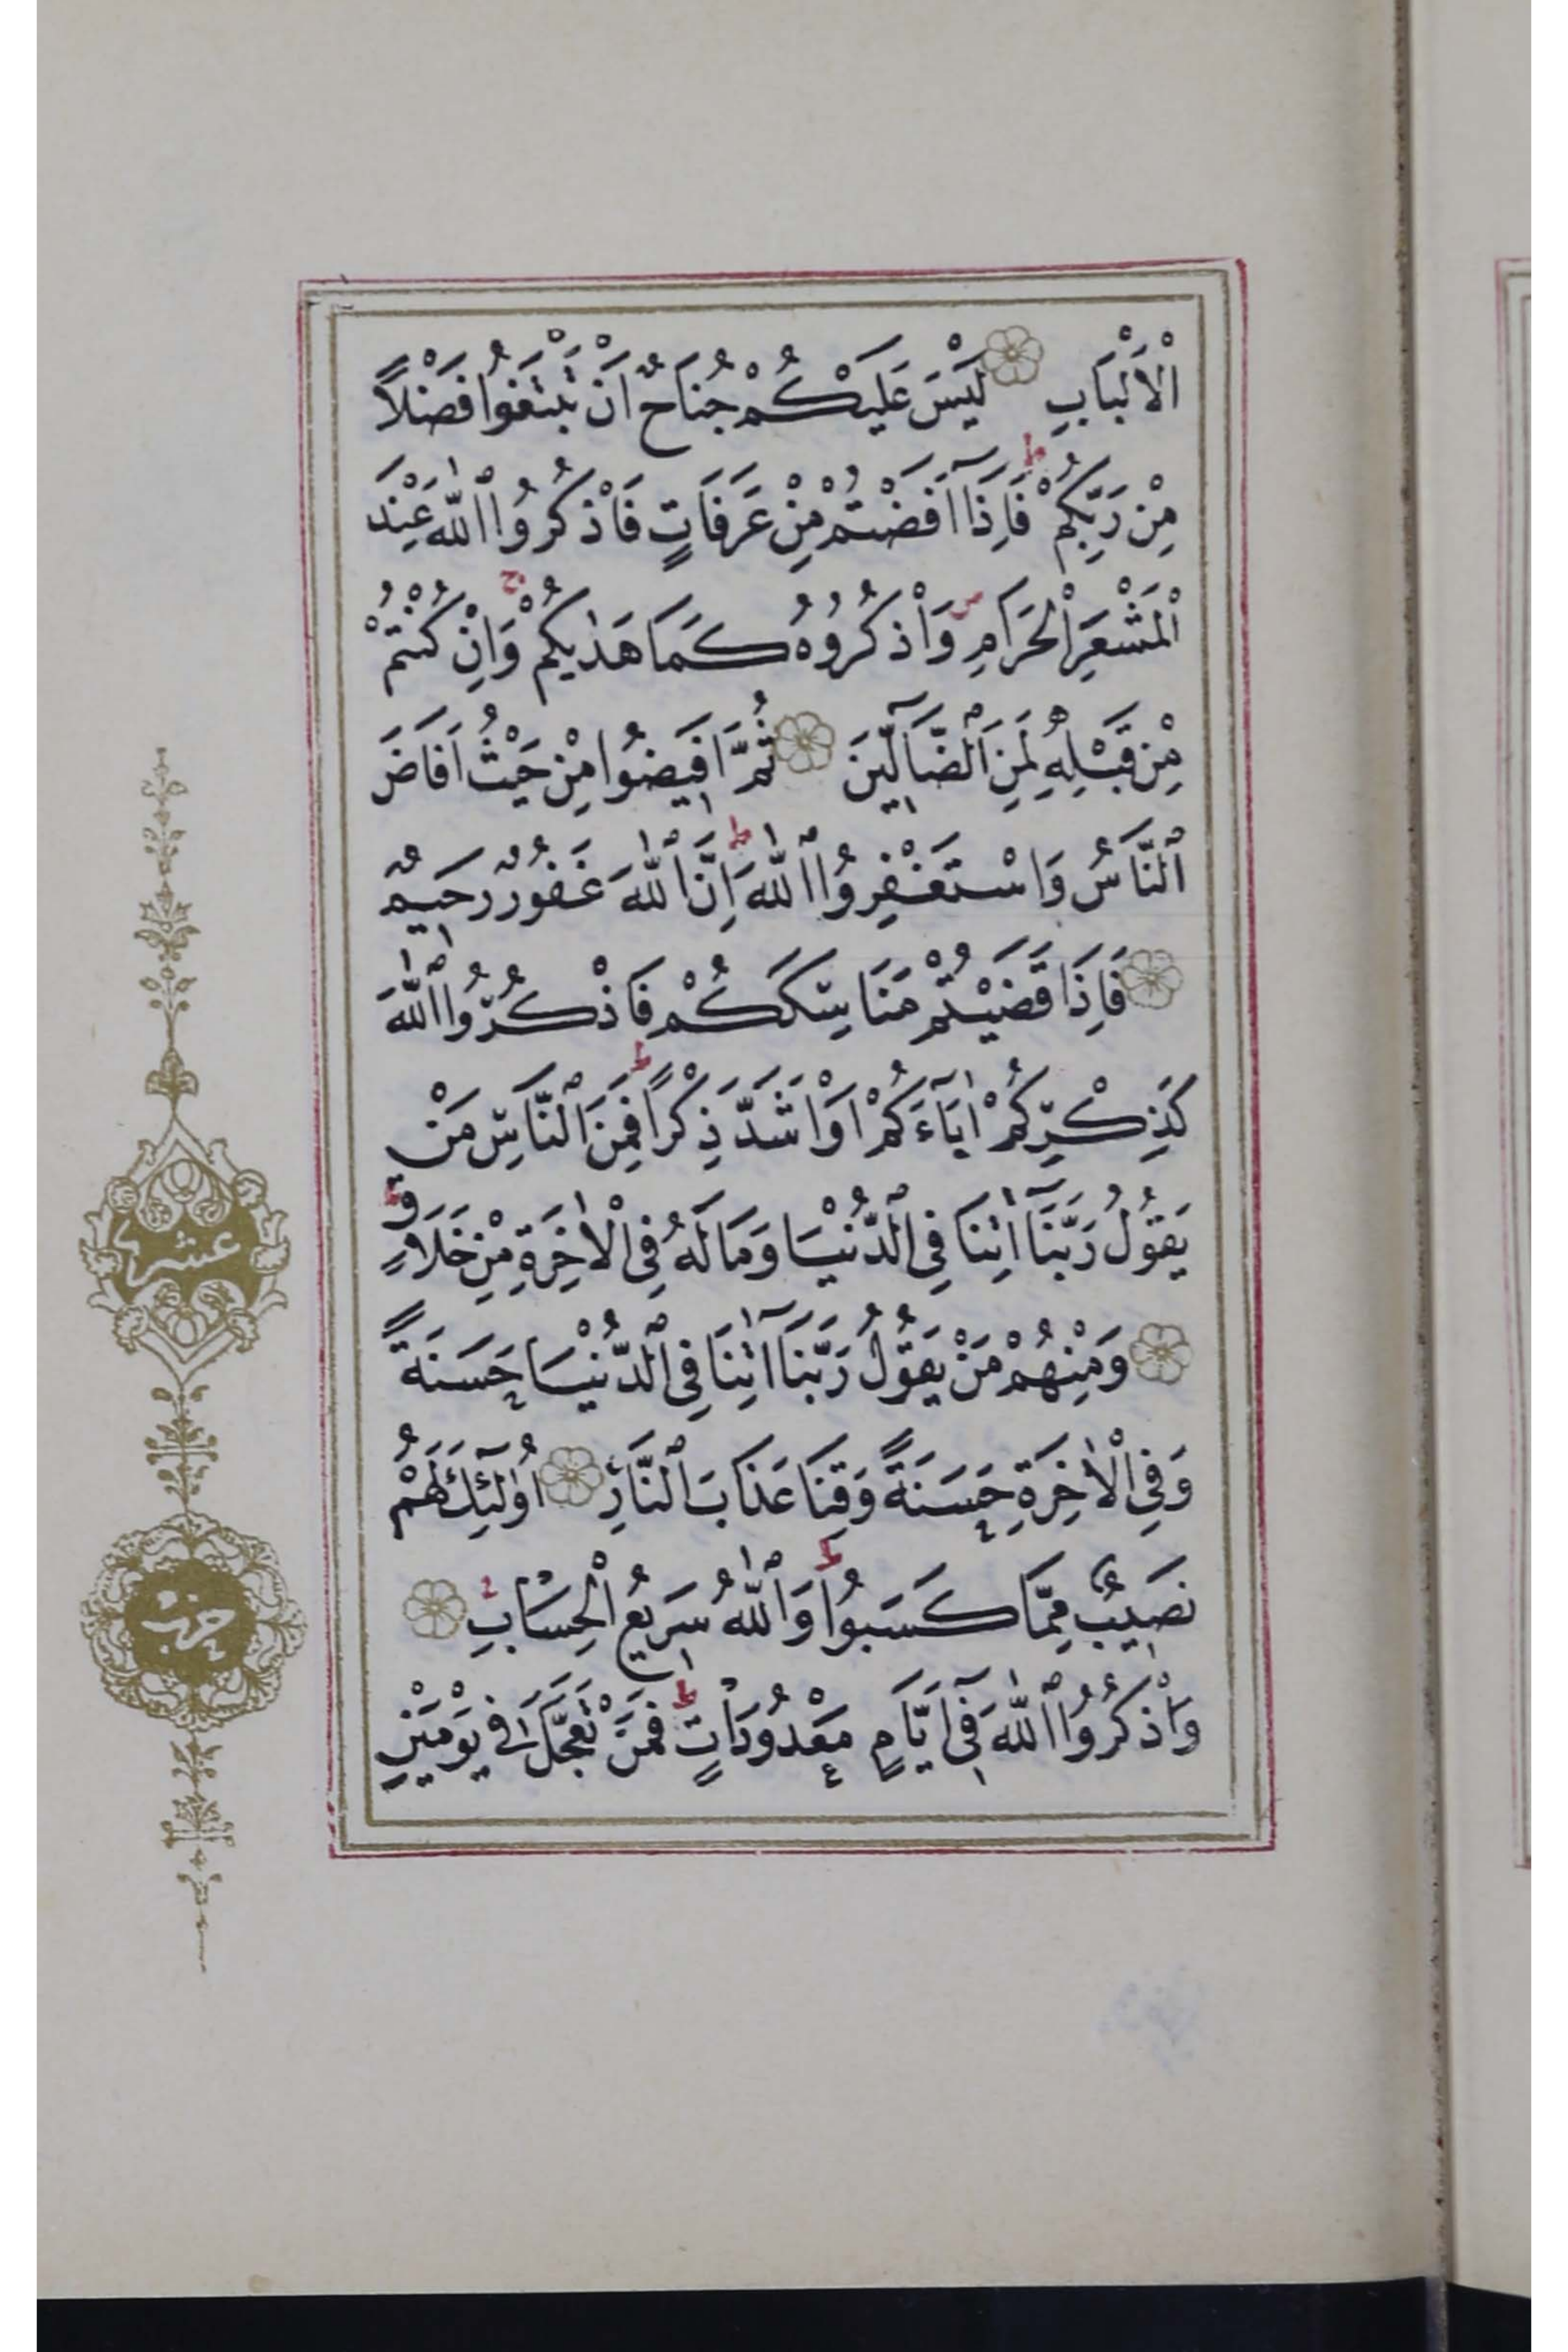 الْاَلْبَابِ لَيْسَ عَلَيْكُمْ جُنَاحٌ اَنْ تَبْتَغُوا فَضْلًا
مِنْ رَبِّكُمْ ط فَاِذَآ اَفَضْتُمْ مِنْ عَرَفَاتٍ فَاذْكُرُوا اللّٰهَ عِنْدَ
الْمَشْعَرِ الْحَرَامِ ص وَاذْكُرُوهُ كَمَا هَدٰيكُمْ ج وَاِنْ كُنْتُمْ
مِنْ قَبْلِهٖ لَمِنَ الضَّآلِّينَ ثُمَّ اَفِيضُوا مِنْ حَيْثُ اَفَاضَ
النَّاسُ وَاسْتَغْفِرُوا اللّٰهَ ط اِنَّ اللّٰهَ غَفُورٌ رَحِيمٌ
فَاِذَا قَضَيْتُمْ مَنَاسِكَكُمْ فَاذْكُرُوا اللّٰهَ
كَذِكْرِكُمْ اٰبَآءَكُمْ اَوْ اَشَدَّ ذِكْرًا ط فَمِنَ النَّاسِ مَنْ
يَقُولُ رَبَّنَآ اٰتِنَا فِي الدُّنْيَا وَمَا لَهُ فِي الْاٰخِرَةِ مِنْ خَلَاقٍ
وَمِنْهُمْ مَنْ يَقُولُ رَبَّنَآ اٰتِنَا فِي الدُّنْيَا حَسَنَةً
وَفِي الْاٰخِرَةِ حَسَنَةً وَقِنَا عَذَابَ النَّارِ اُولٰٓئِكَ لَهُمْ
نَصِيبٌ مِمَّا كَسَبُوا ط وَاللّٰهُ سَرِيعُ الْحِسَابِ
وَاذْكُرُوا اللّٰهَ فِيٓ اَيَّامٍ مَعْدُودَاتٍ ط فَمَنْ تَعَجَّلَ فِي يَوْمَيْنِ
عشر
حزب